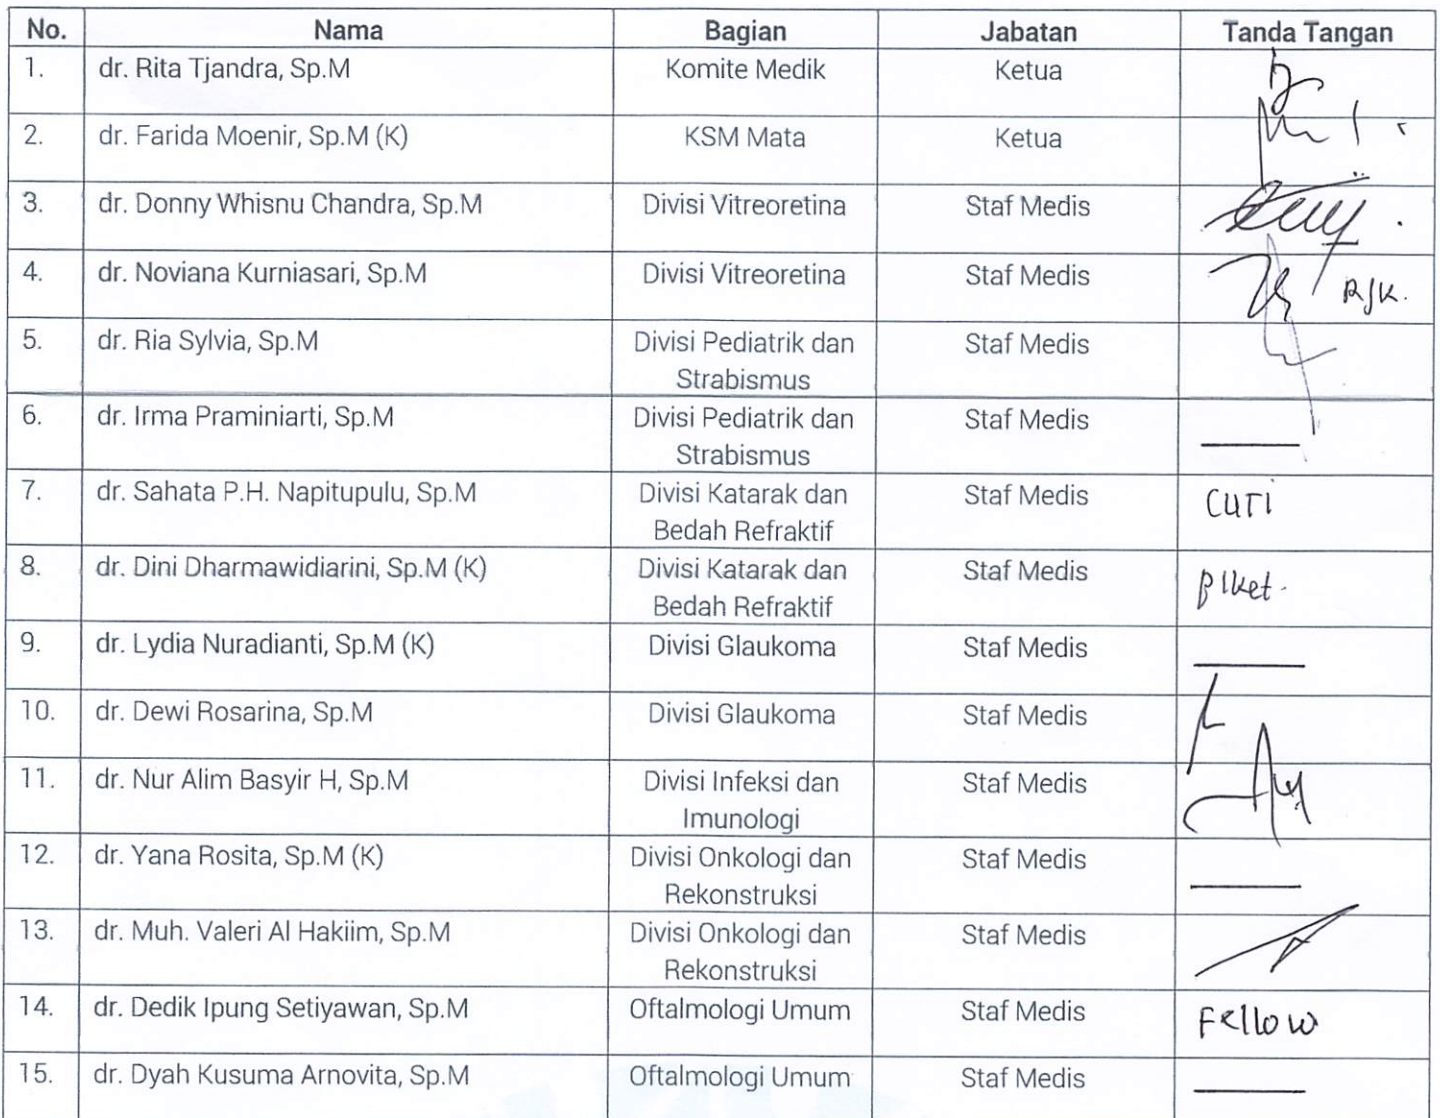 No. Nama Bagian Jabatan Tanda Tangan
1. dr. Rita Tjandra, Sp.M Komite Medik Ketua
2. dr. Farida Moenir, Sp.M (K) KSM Mata Ketua
3. dr. Donny Whisnu Chandra, Sp.M Divisi Vitreoretina Staf Medis
4. dr. Noviana Kurniasari, Sp.M Divisi Vitreoretina Staf Medis
5. dr. Ria Sylvia, Sp.M Divisi Pediatrik dan Staf Medis
Strabismus
6. dr. Irma Praminiarti, Sp.M Divisi Pediatrik dan Staf Medis
Strabismus
7. dr. Sahata P.H. Napitupulu, Sp.M Divisi Katarak dan Staf Medis CUTI
Bedah Refraktif
8. dr. Dini Dharmawidiarini, Sp.M (K) Divisi Katarak dan Staf Medis piket.
Bedah Refraktif
9. dr. Lydia Nuradianti, Sp.M (K) Divisi Glaukoma Staf Medis
10. dr. Dewi Rosarina, Sp.M Divisi Glaukoma Staf Medis
11. dr. Nur Alim Basyir H, Sp.M Divisi Infeksi dan Staf Medis
Imunologi
12. dr. Yana Rosita, Sp.M (K) Divisi Onkologi dan Staf Medis
Rekonstruksi
13. dr. Muh. Valeri Al Hakiim, Sp.M Divisi Onkologi dan Staf Medis
Rekonstruksi
14. dr. Dedik Ipung Setiyawan, Sp.M Oftalmologi Umum Staf Medis Fellow
15. dr. Dyah Kusuma Arnovita, Sp.M Oftalmologi Umum Staf Medis